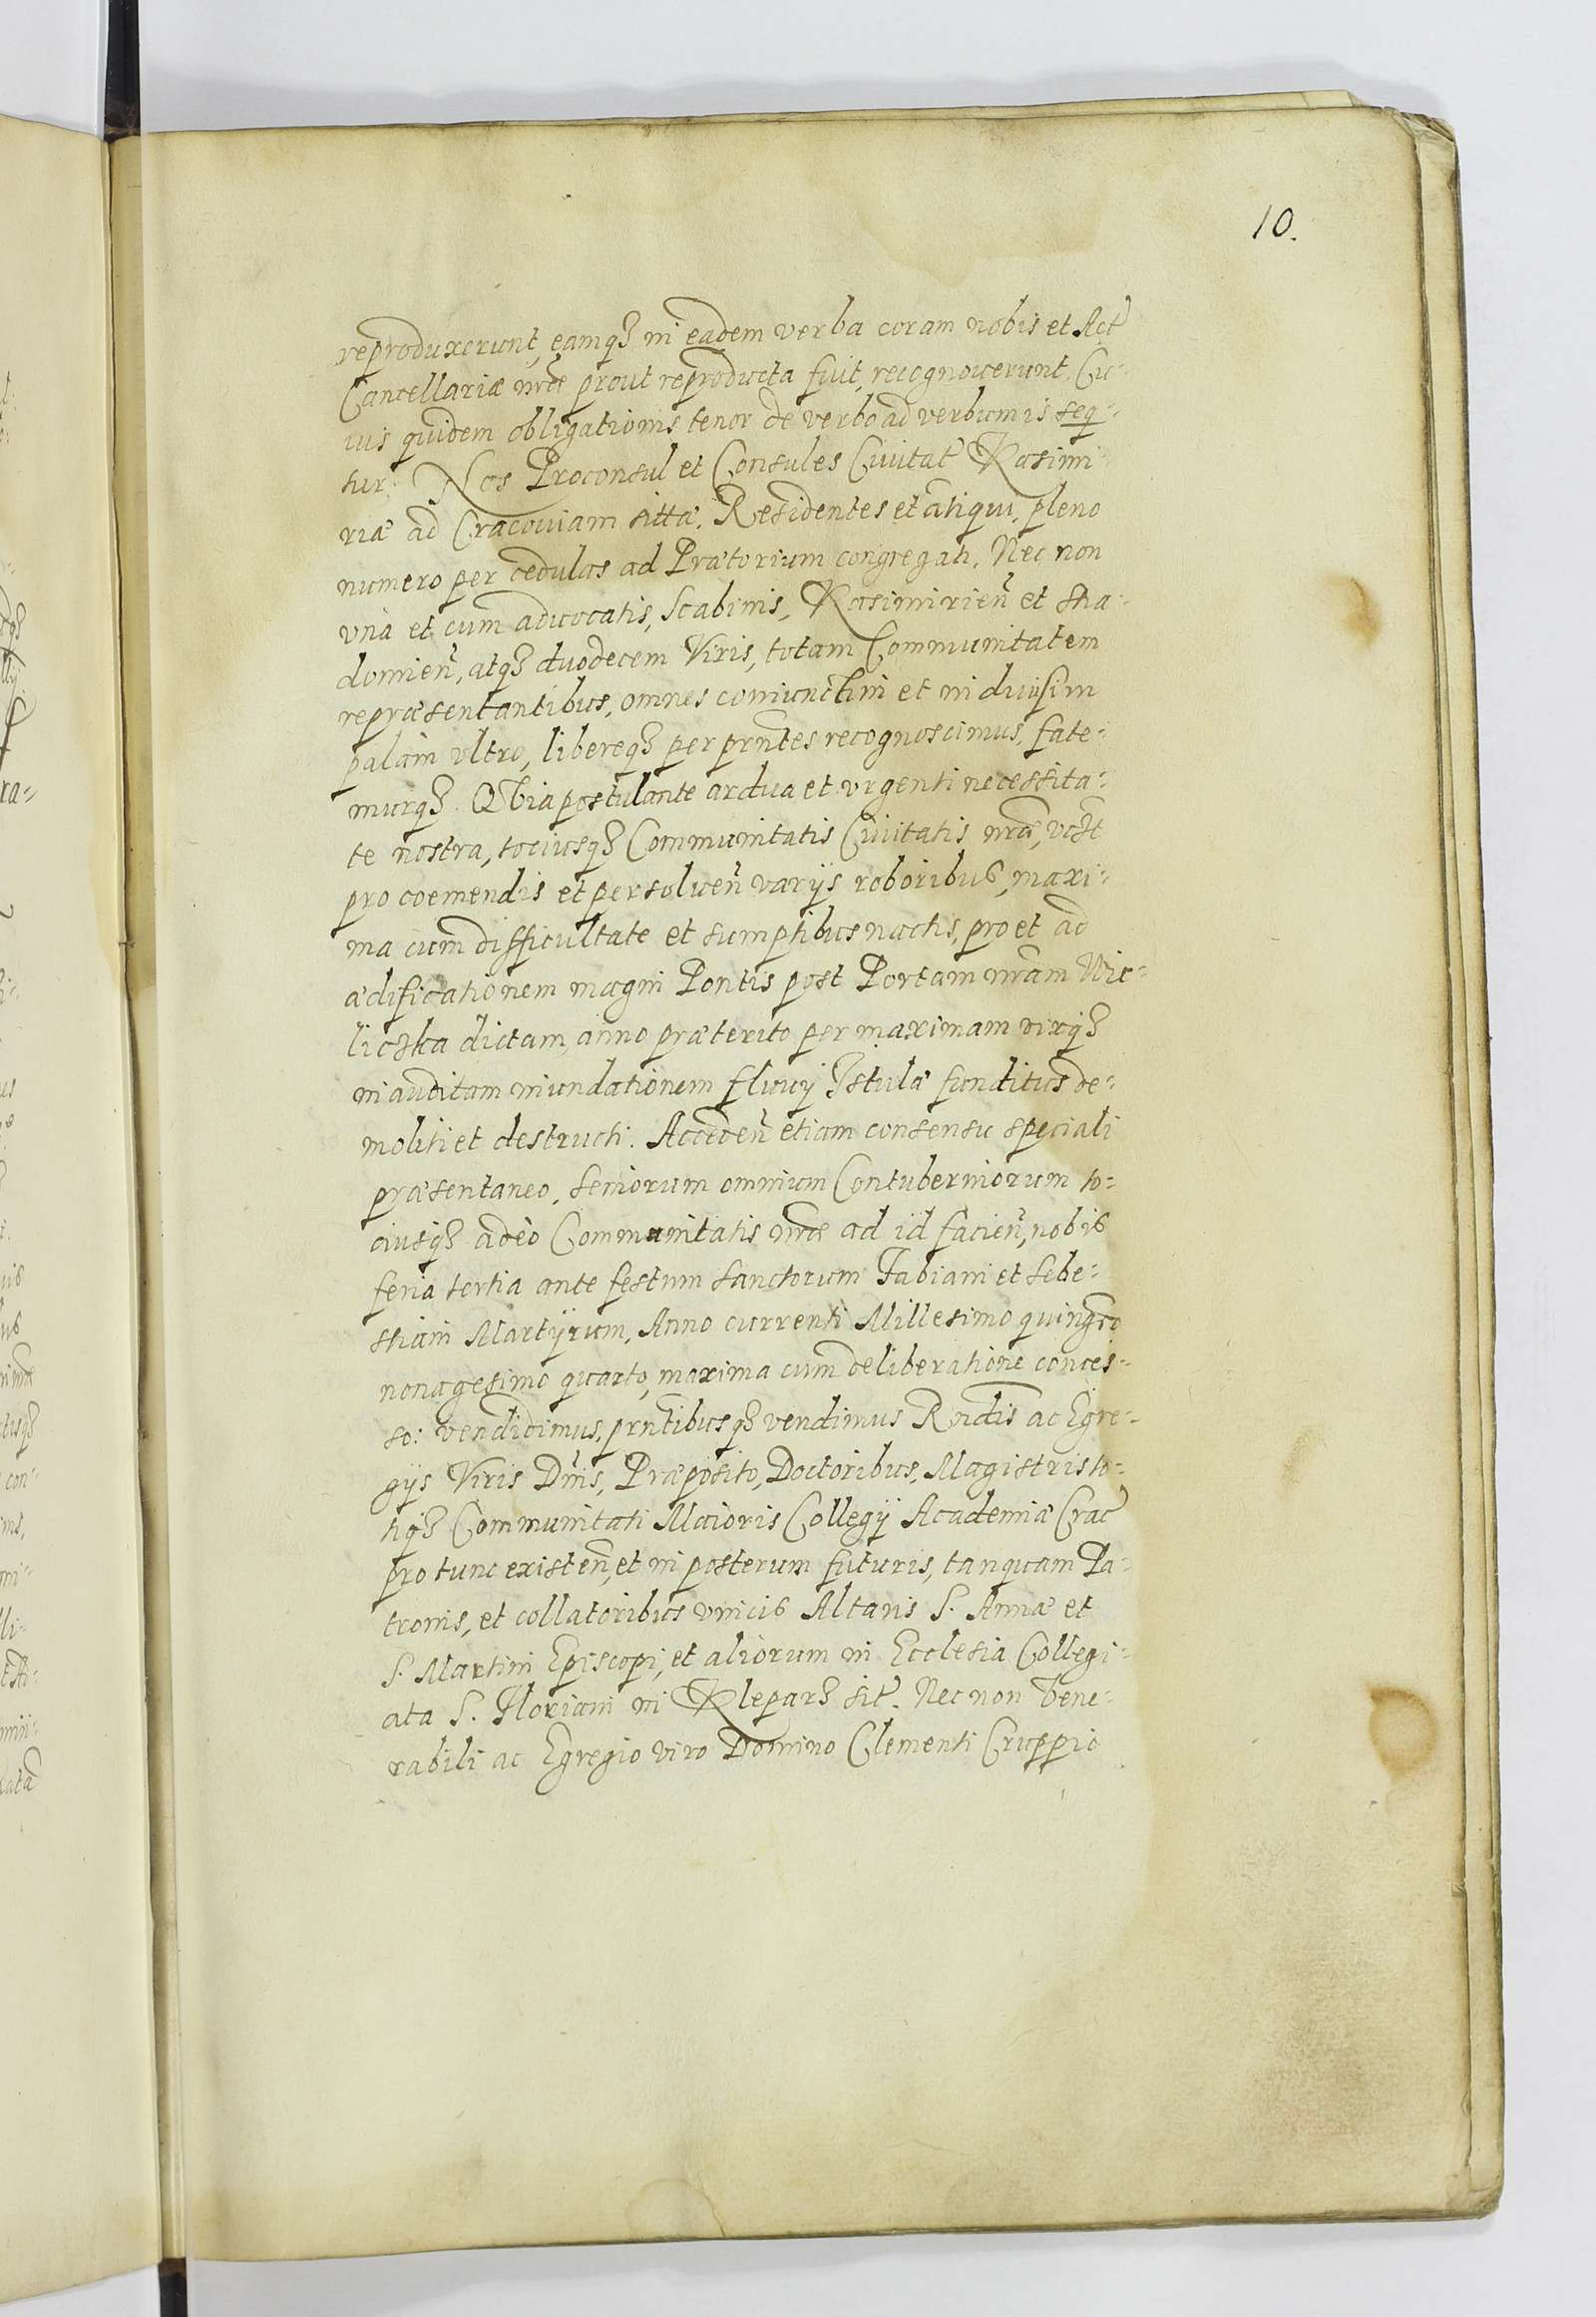 10.
reproduxerunt, eamq₃ in eadem verba coram nobis et Act
Cancellariæ nr̃æ prout reproducta fuit, recognoverunt. Cu-
ius quidem obligationis tenor de verbo ad verbum is seq-
tur. Nos Proconsul et Consules Civitat Kasimi
riæ ad Cracouiam sittæ, Residentes et ãtiqui, pleno
numero per cedulas ad Prætorium congregati, Nec non
vnà et cum aduocatis, Scabinis, Kasimirien̄ et Stra-
domien̄, atq₃ duodecem Viris, totam Communitatem
repræsentantibus, omnes coniunctim et in diuisim
palàm vltro, libereq₃ per prñtes recognoscimus, fate-
murq₃. QVia postulante ardua et vrgenti necessita-
te nostra, tociusq₃ Communitatis Civitatis nr̃æ, vczt
pro coemendis et persoluen̄ varijs roboribus, maxi-
ma cum difficultate et sumptibus nactis, pro et ad
ædificationem magni Pontis post Portam nr̃am Wie-
liczka dictam, anno præterito per maximam vixq₃
inauditam inundationem fluuij Istulæ funditus de-
moliti et destructi. Acceden̄ etiam consensu speciali
præsentaneo, seniorum omnium Contuberniorum to-
ciusq₃ adeò Communitatis nr̃æ ad id facien̄, nobis
feria tertia ante festum sanctorum Fabiani et Seba-
stiani Martyrum, Anno currenti Millesimo quing̃to
nonagesimo quarto, maxima cum deliberatione conces-
so: vendidimus, prñtibusq₃ vendimus Rñdis ac Egre-
gijs Viris Dnis, Præposito, Doctoribus, Magistris to-
tiq₃ Communitati Maioris Collegij Academiæ Crac
pro tunc existen̄, et in posterum futuris, tanquam Pa-
tronis, et collatoribus vnicis Altaris S. Annæ et
S. Martini Episcopi, et aliorum in Ecclesia Collegi-
ata S. Floriani in Klepar₃ sit. Nec non Vene-
rabili ac Egregio viro Domino Clementi Cruspio